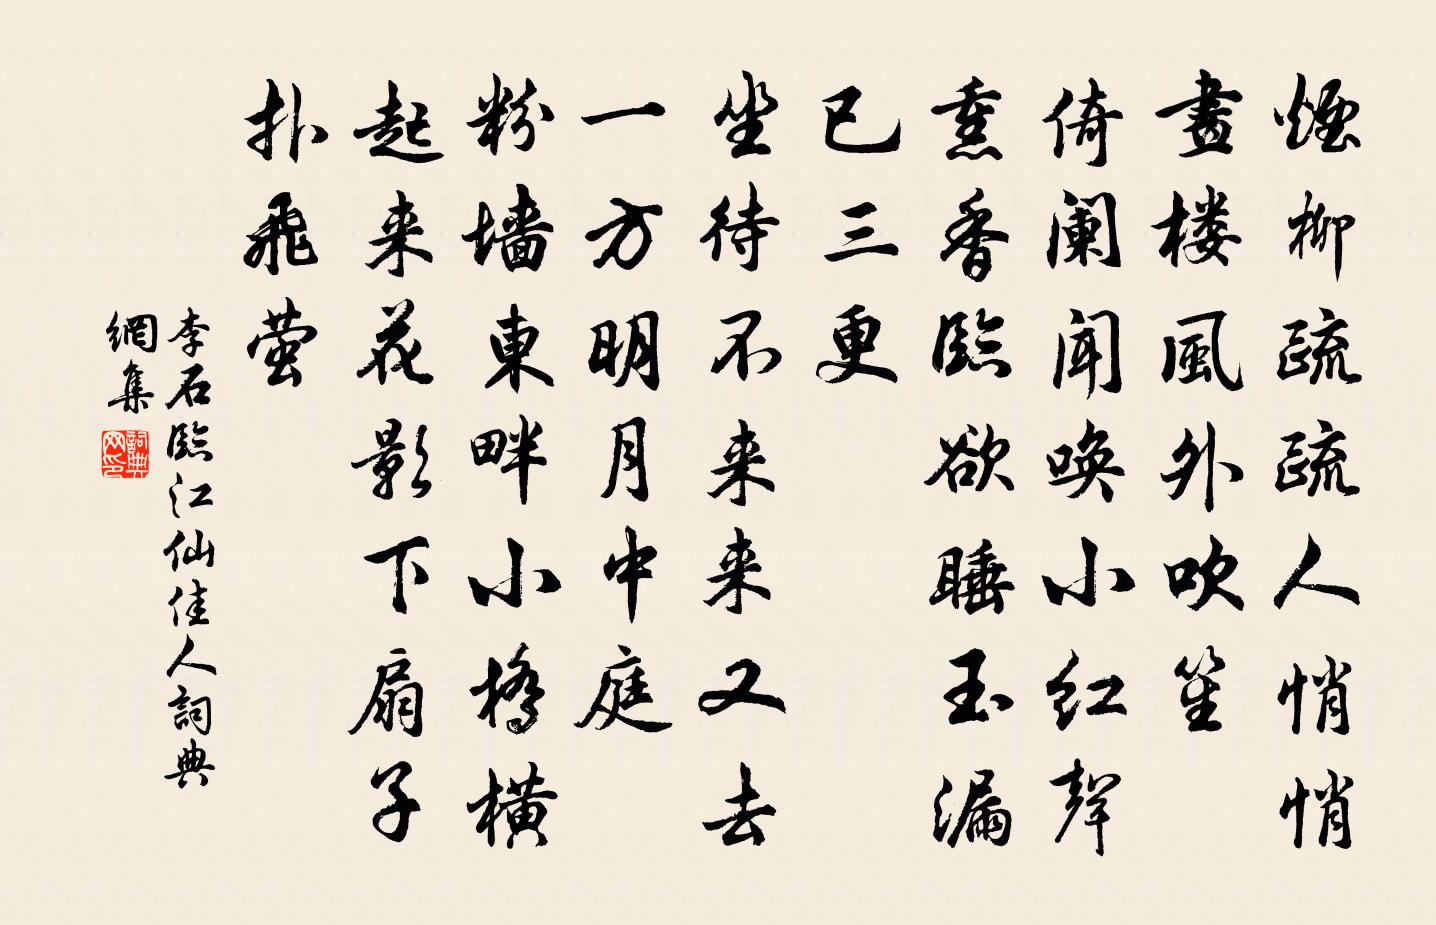 煙柳疏疏人悄悄
畫楼風外吹笙
倚阑聞喚小红聲
熏香臨欲睡玉漏
已三更
坐待不来来又去
一方明月中庭
粉墙東畔小橋橫
起来花影下扇子
扑飛萤
李石臨江仙佳人詞典
網集
詞典
网印